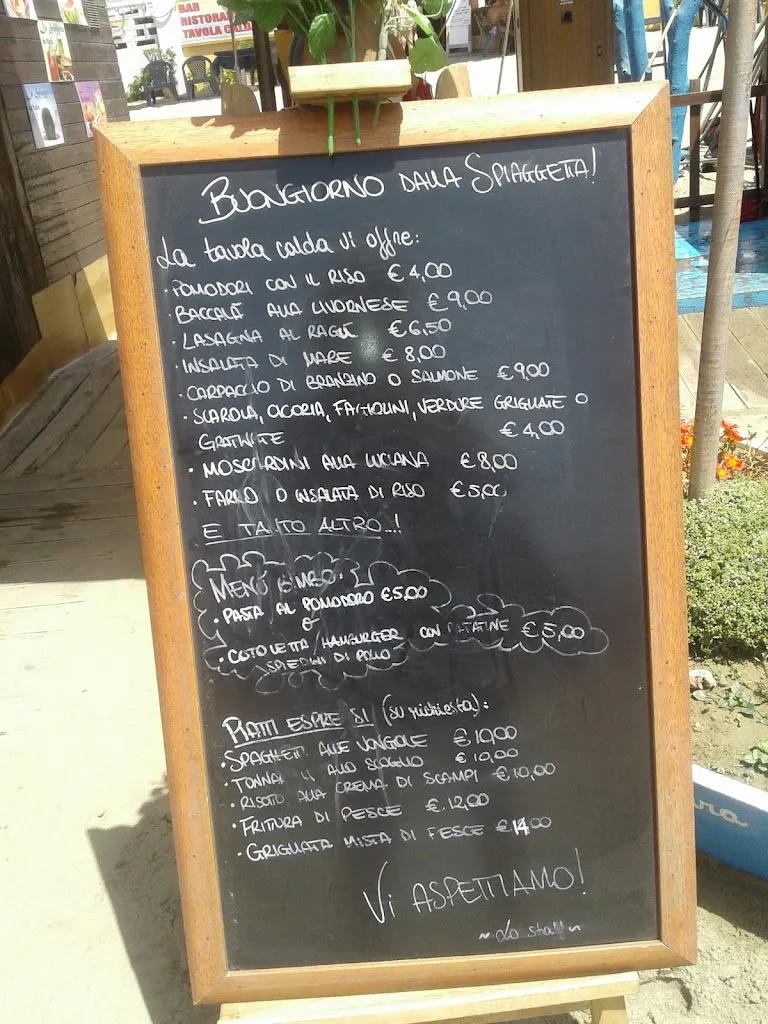 BAR
RISTORA
TAVOLA CALD
BUONGIORNO DALLA SPIAGGETTA!
La tavola calda vi offre:
· POMODORI CON IL RISO € 4,00
· BACCALÀ ALLA LIVORNESE € 9,00
· LASAGNA AL RAGÙ € 6,50
· INSALATA DI MARE € 8,00
· CARPACCIO DI BRANZINO O SALMONE € 9,00
· SCAROLA, CICORIA, FAGIOLINI, VERDURE GRIGLIATE O
GRATINATE € 4,00
· MOSCARDINI ALLA LUCIANA € 8,00
· FARRO O INSALATA DI RISO € 5,00
E TANTO ALTRO...!
MENÙ BIMBO:
· PASTA AL POMODORO € 5,00
O
· COTOLETTA/HAMBURGER CON PATATINE € 5,00
SPIEDINI DI POLLO
PIATTI ESPRESSI (su richiesta):
· SPAGHETTI ALLE VONGOLE € 10,00
· TONNARELLI ALLO SCOGLIO € 10,00
· RISOTTO ALLA CREMA DI SCAMPI € 10,00
· FRITTURA DI PESCE € 12,00
· GRIGLIATA MISTA DI PESCE € 14,00
VI ASPETTIAMO!
~ Lo staff ~